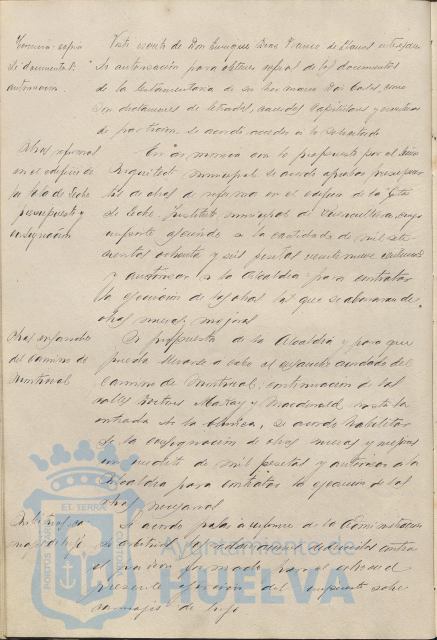 Tercero: copia
de documentos
autorizacion
Visto escrito de Don Enrique Diaz Franco de Llanos interesan
la autorización para obtener copias de los documentos
de la testamentaria de su hermano Don Carlos, como
son dictamenes de letrados, acuerdos Capitulares y escritura
de partición, se acordó acceder a lo solicitado
Obras reformas
en el edificio de
la Gota de Leche
presupuesto y
consignación
En armonia con lo propuesto por el Señor
Arquitecto municipal se acordó aprobar presupues
tos de obras de reforma en el edificio de la Gota
de Leche, Instituto municipal de Puericultura, cuyo
importe asciende a la cantidad de mil sete
cientas ochenta y seis pesetas veinte nueve centimos
y autorizar a la Alcaldia para contratar
la ejecución de las obras las que se abonaran de
obras nuevas y mejoras
Obras ensanche
del camino de
Montrocal
A propuesta de la Alcaldia y para que
pueda llevarse a cabo el ensanche acordado del
Camino de Montrocal, continuación de las
calles Doctores Mackay y Macdonald hasta la
entrada de la clinica, se acordó habilitar
de la consignación de obras nuevas y mejoras
un credito de mil pesetas y autorizar a la
Alcaldia para contratar la ejecución de las
obras necesarias
Se acordó pasar a informe de la Administración
de arbitrios las reclamaciones deducidas contra
el padron formado para el actual
presente ejercicio del impuesto sobre
carruajes de lujo
EL TERRA
PORTUS
CUSTODIA
Ayuntamiento de
HUELVA